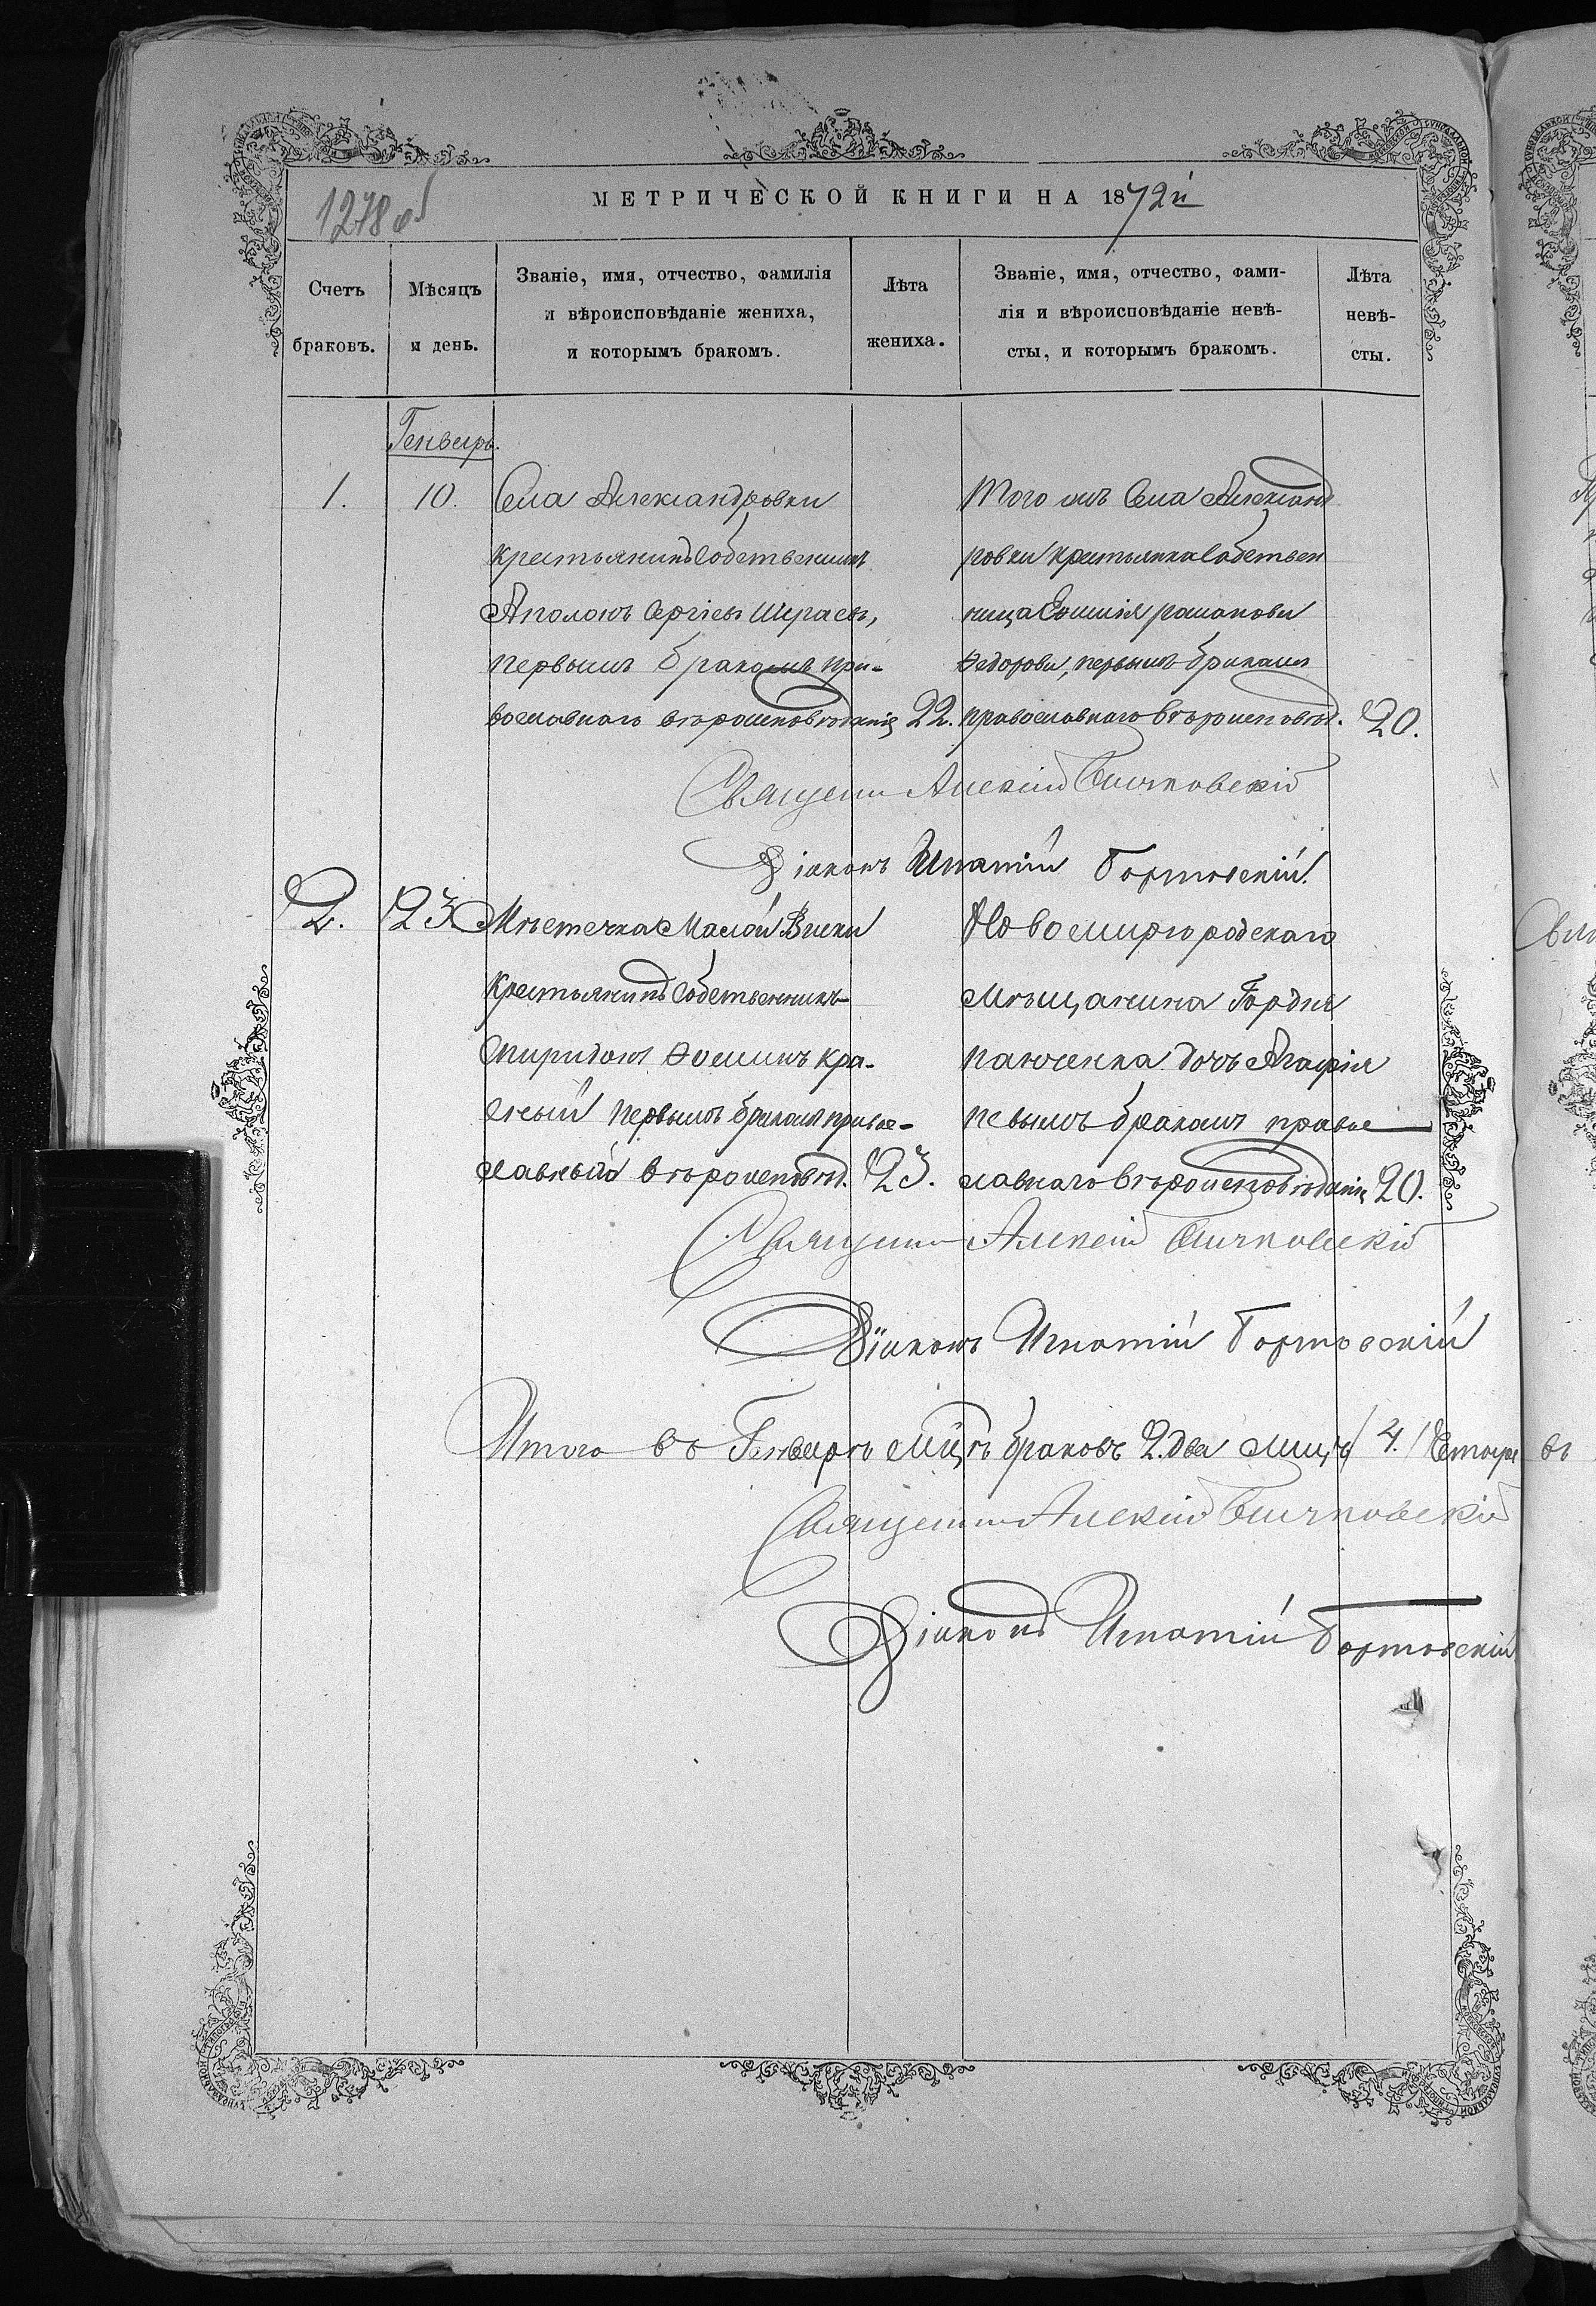 1278 об
МЕТРИЧЕСКОЙ КНИГИ НА 1872й
Счетъ браковъ.
Мѣсяцъ и день.
Званіе, имя, отчество, фамилія
и вѣроисповѣданіе жениха,
и которымъ бракомъ.
Лѣта жениха.
Званіе, имя, отчество, фами-
лія и вѣроисповѣданіе невѣ-
сты, и которымъ бракомъ.
Лѣта невѣ-
сты.
Генварь.
1.
10.
Села Александровки
крестьянинъ Собственникъ
Аполонъ Сергіевъ
первымъ бракомъ пра-
вославнаго вѣроисповѣданія
22.
Того жъ Села Александ
ровки крестьянка Собствен
ница романова
Ѳедорова, первымъ бракомъ
православнаго вѣроисповѣд.
20.
Священн Алексій
Діаконъ Игнатій Бортовскій.
2.
23
Мѣстечка Малой Виски
Крестьянинъ Собственникъ
Спиридонъ Ѳоминъ Кра-
сный первымъ бракомъ правос-
лавный вѣроисповѣд.
23.
Новомиргородскаго
мѣщанина Гордія
Панченка дочь Агафія
певымъ бракомъ правос
лавнаго вѣроисповѣданія
20.
Священн Алексій
Діаконъ Игнатій Бортовскій
Итого въ Генварѣ мцѣ браковъ 2. два лицъ 4. Четыре
Священн Алексій
Діаконъ Игнатій Бортовскій